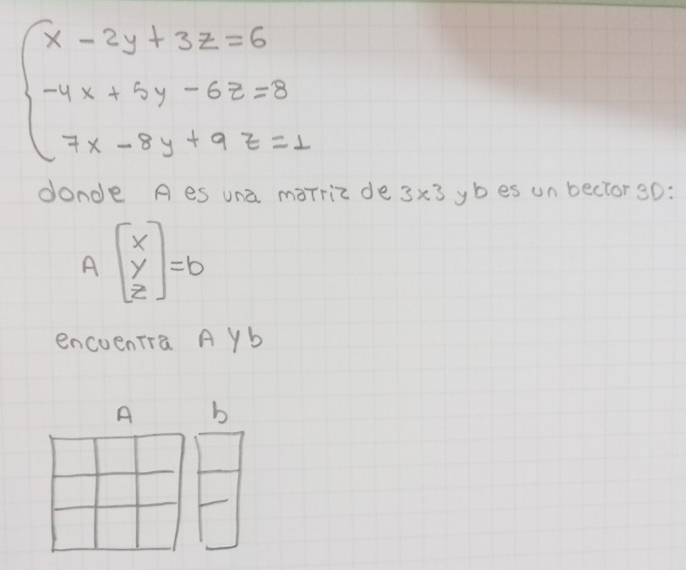 x - 2y + 3z = 6
-4x + 5y - 6z = 8
7x - 8y + 9z = 1
donde A es una matriz de 3x3 y b es un bector 3D:
A [x y z] = b
encuentra A y b
A b